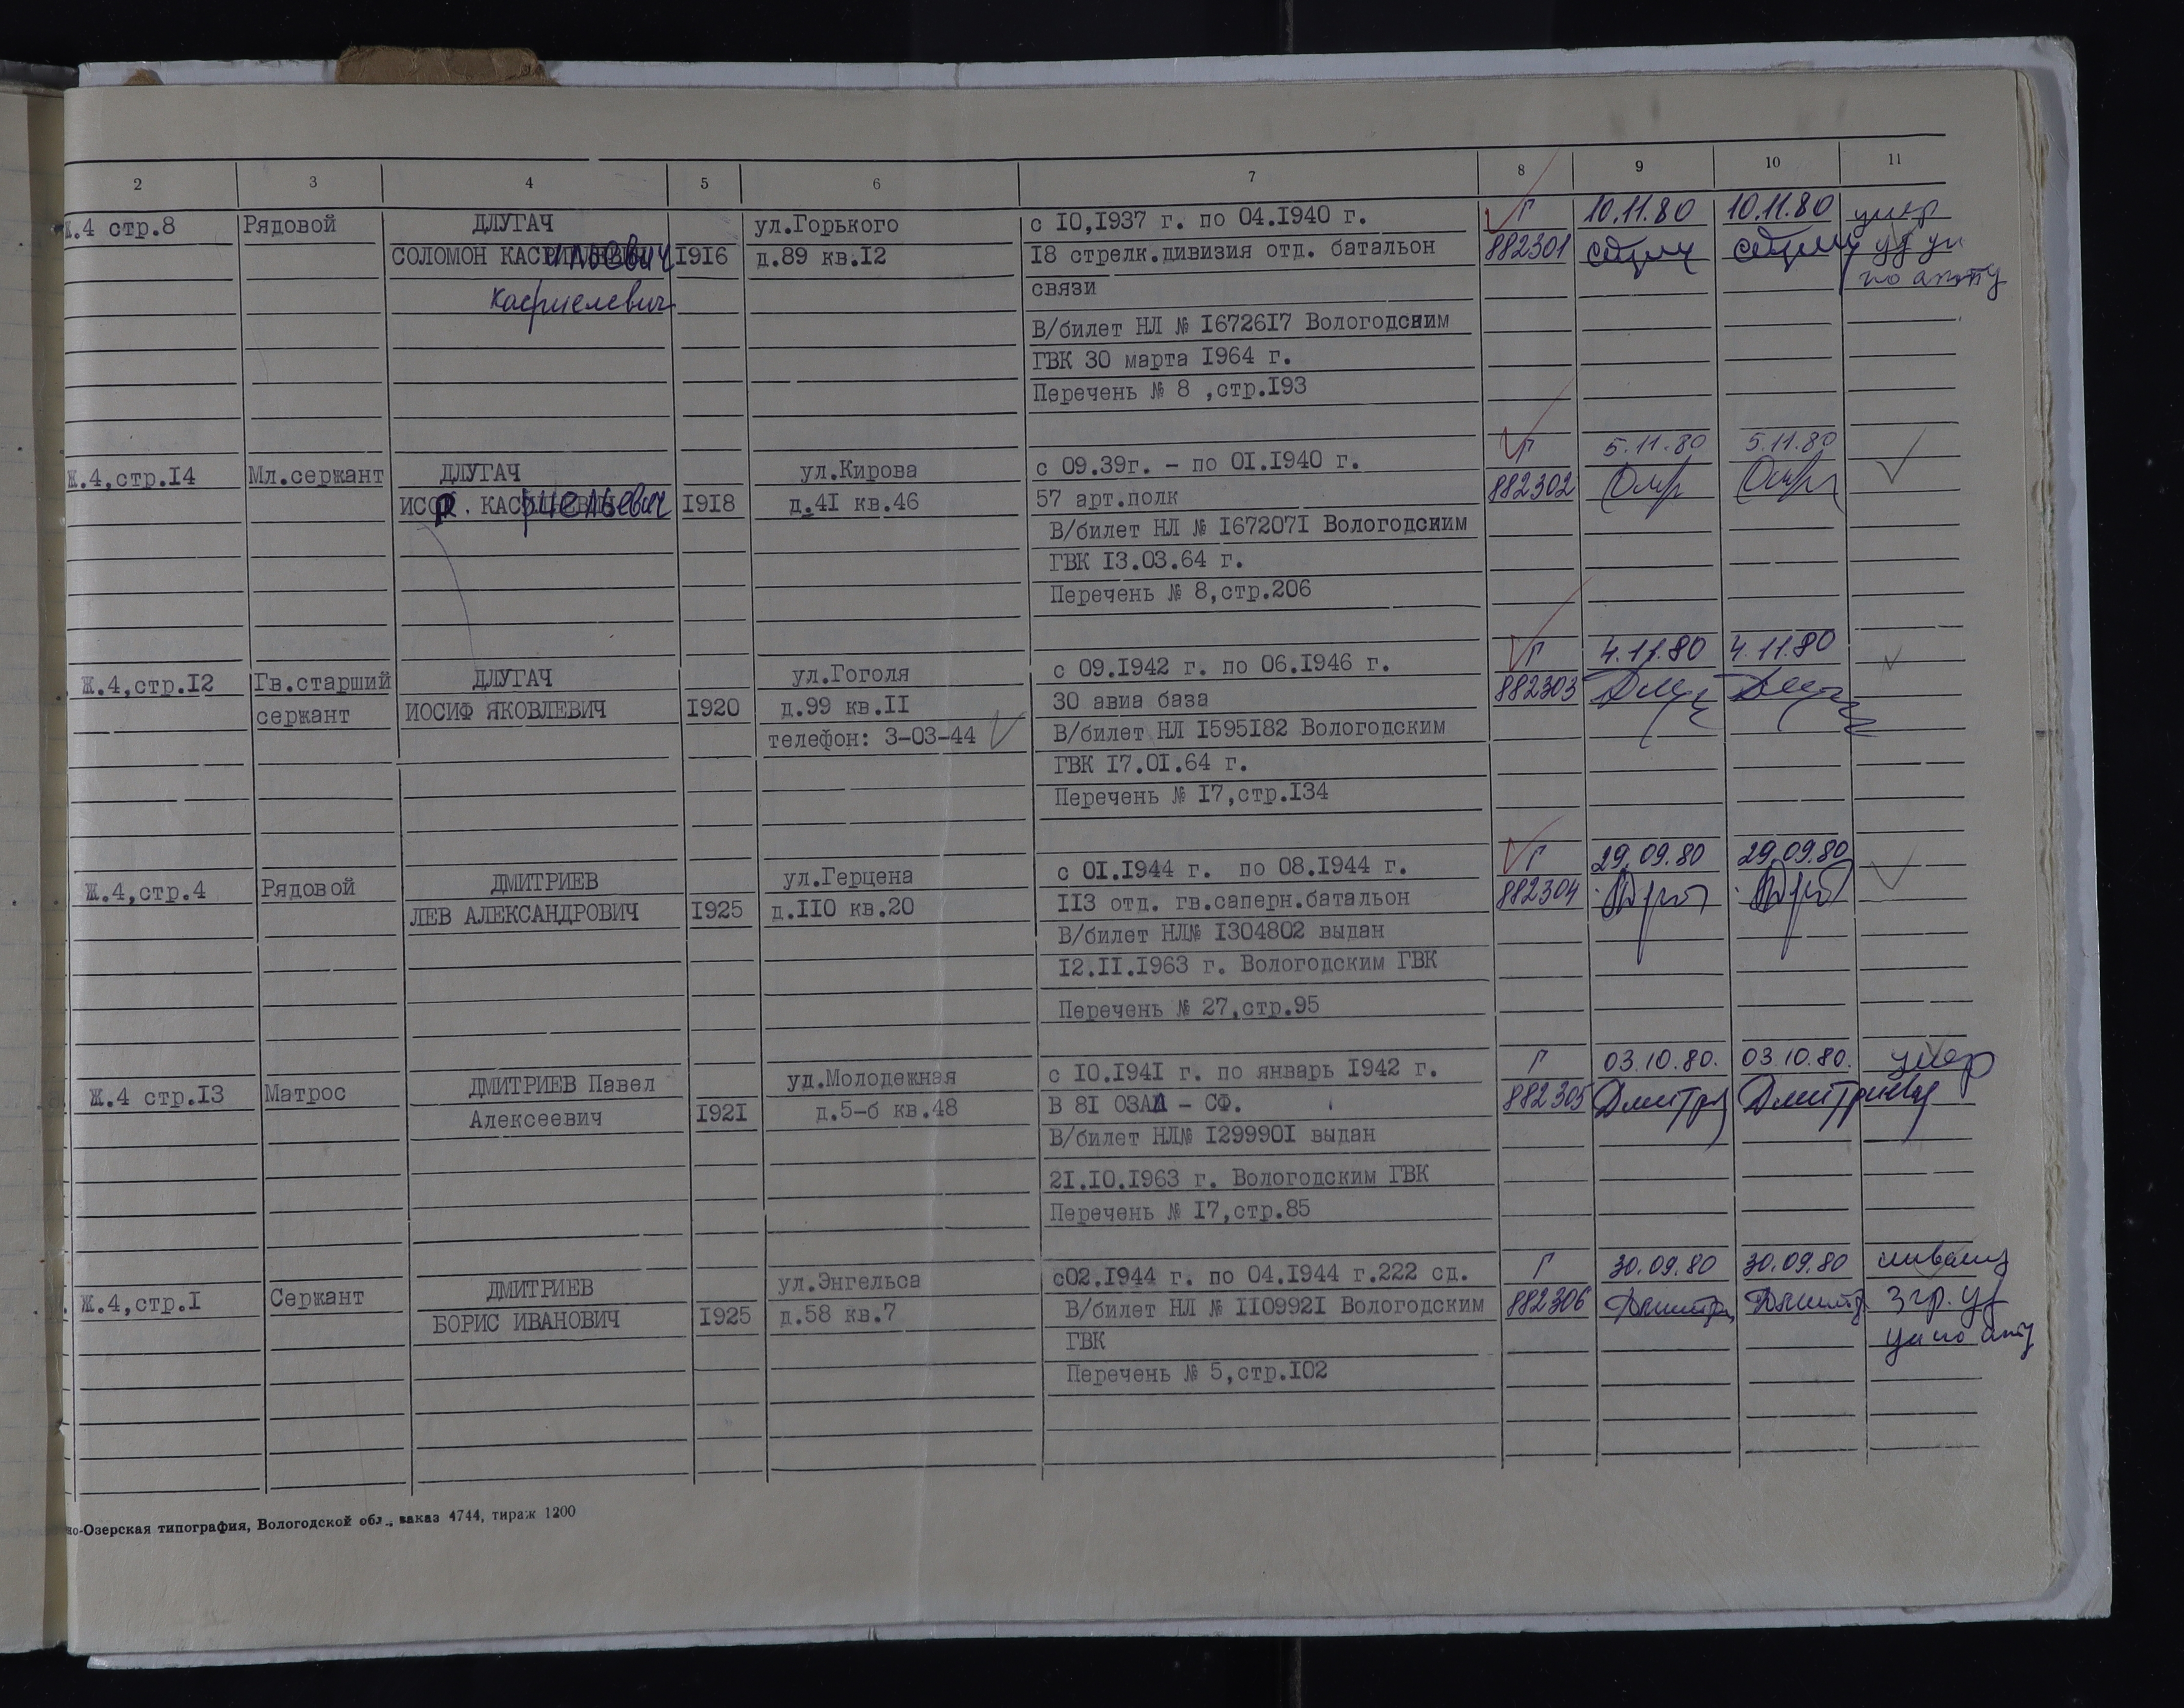 2 3 4 5 6 7 8 9 10 11
Ж.4 стр.8 Рядовой ДЛУГАЧ ул.Горького с 10,1937 г. по 04.1940 г. Г 10.11.80 10.11.80 умер
СОЛОМОН 1916 д.89 кв.12 18 стрелк.дивизия отд. батальон 882301
Касриелевич связи по акту
В/билет НЛ № 1672617 Вологодским
ГВК 30 марта 1964 г.
Перечень № 8 ,стр.193
Ж.4,стр.14 Мл.сержант ДЛУГАЧ ул.Кирова с 09.39г. - по 01.1940 г. Г 5.11.80 5.11.80
1918 д.41 кв.46 57 арт.полк 882302
В/билет НЛ № 1672071 Вологодским
ГВК 13.03.64 г.
Перечень № 8,стр.206
Ж.4,стр.12 Гв.старший ДЛУГАЧ ул.Гоголя с 09.1942 г. по 06.1946 г. Г 4.11.80 4.11.80
сержант ИОСИФ ЯКОВЛЕВИЧ 1920 д.99 кв.11 30 авиа база 882303
телефон: 3-03-44 В/билет НЛ 1595182 Вологодским
ГВК 17.01.64 г.
Перечень № 17,стр.134
Ж.4,стр.4 Рядовой ДМИТРИЕВ ул.Герцена с 01.1944 г. по 08.1944 г. Г 29.09.80 29.09.80
ЛЕВ АЛЕКСАНДРОВИЧ 1925 д.110 кв.20 113 отд. гв.саперн.батальон 882304
В/билет НЛ№ 1304802 выдан
12.11.1963 г. Вологодским ГВК
Перечень № 27,стр.95
Ж.4 стр.13 Матрос ДМИТРИЕВ Павел уд.Молодежная с 10.1941 г. по январь 1942 г. Г 03.10.80. 03.10.80. умер
Алексеевич 1921 д.5-б кв.48 В 81 ОЗАД - СФ. 882305
В/билет НЛ№ 1299901 выдан
21.10.1963 г. Вологодским ГВК
Перечень № 17,стр.85
Ж.4,стр.1 Сержант ДМИТРИЕВ ул.Энгельса с02.1944 г. по 04.1944 г.222 сд. Г 30.09.80 30.09.80
БОРИС ИВАНОВИЧ 1925 д.58 кв.7 В/билет НЛ № 1109921 Вологодским 882306 3 гр.
ГВК
Перечень № 5,стр.102
но-Озерская типография, Вологодской обл., заказ 4744, тираж 1200